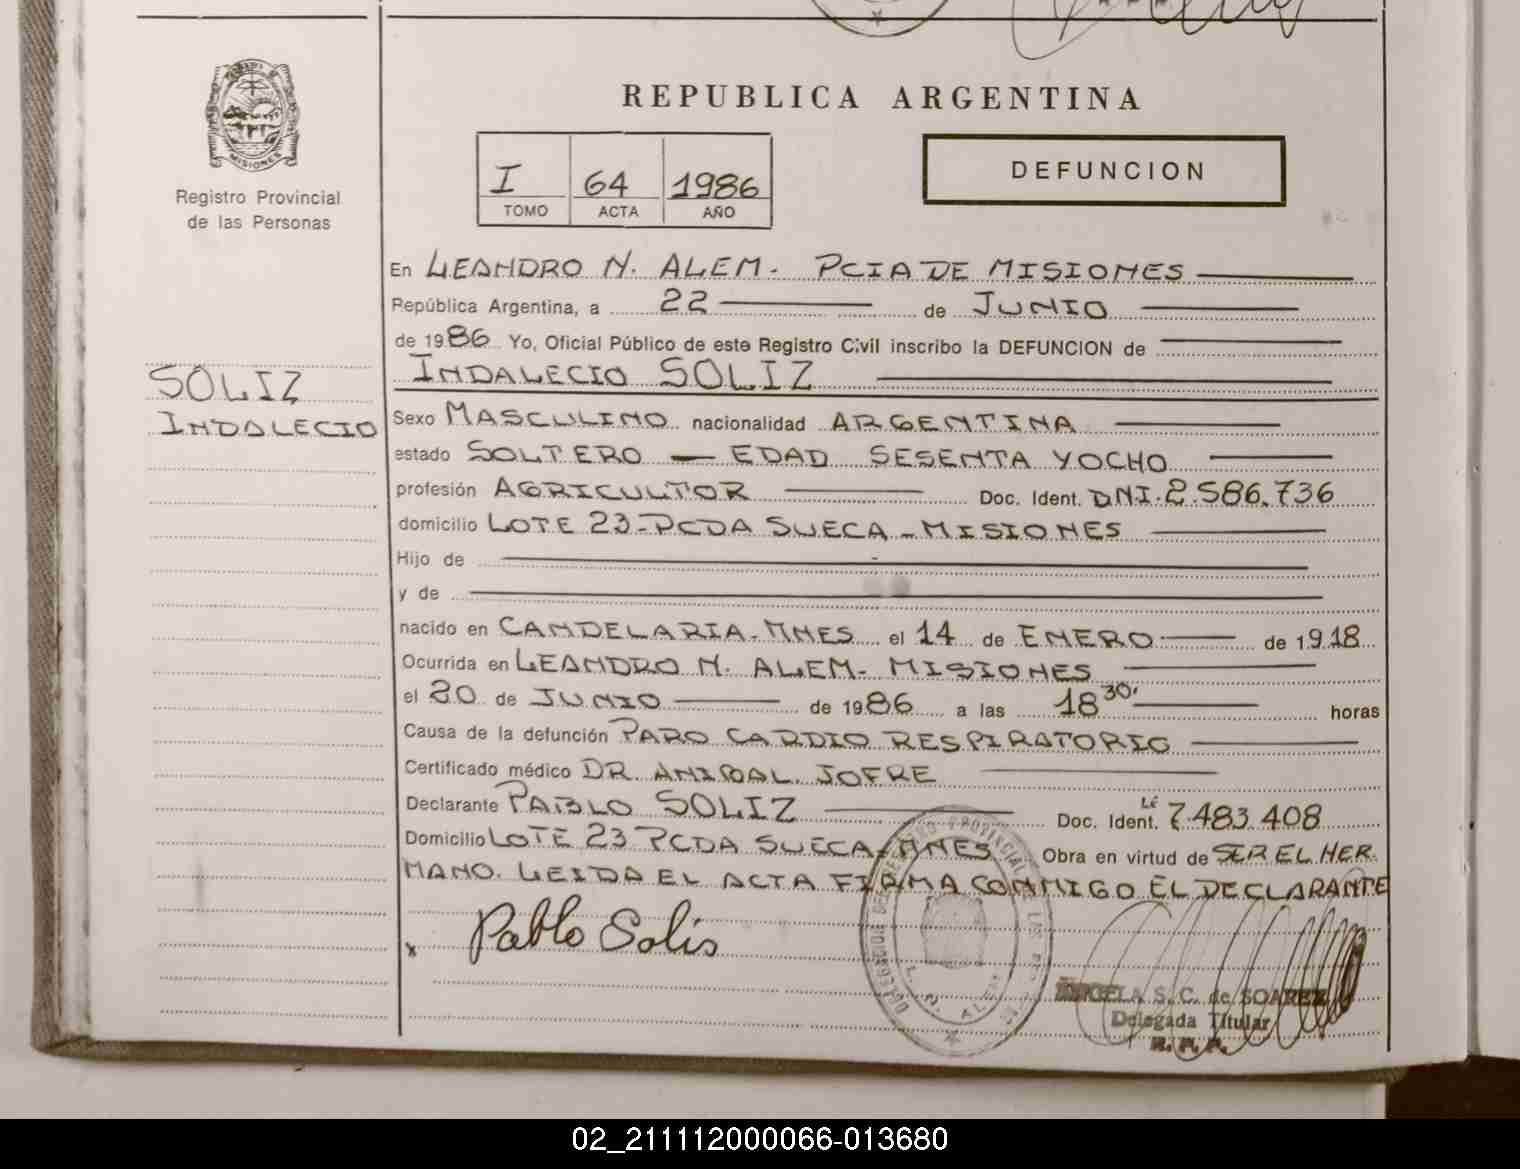 REPUBLICA ARGENTINA
MISIONES
Registro Provincial
de las Personas
I 64 1986
TOMO ACTA AÑO
DEFUNCION
En LEANDRO N. ALEM. PCIA DE MISIONES
República Argentina, a 22 de JUNIO
de 1986 Yo, Oficial Público de este Registro Civil inscribo la DEFUNCION de
INDALECIO SOLIZ
SOLIZ
INDALECIO
Sexo MASCULINO nacionalidad ARGENTINA
estado SOLTERO — EDAD SESENTA Y OCHO
profesión AGRICULTOR Doc. Ident. DNI. 2.586.736
domicilio LOTE 23 - PCDA SUECA - MISIONES
Hijo de
y de
nacido en CANDELARIA. MNES el 14 de ENERO de 1918
Ocurrida en LEANDRO N. ALEM - MISIONES
el 20 de JUNIO de 1986 a las 18 30' horas
Causa de la defunción PARO CARDIO RESPIRATORIO
Certificado médico DR. ANIBAL JOFRE
Declarante PABLO SOLIZ Doc. Ident. LE 7.483.408
Domicilio LOTE 23 PCDA SUECA - MNES Obra en virtud de SER EL HER
MANO. LEIDA EL ACTA FIRMA CONMIGO EL DECLARANTE
x Pablo Solis
ANGELA S. C. de SOAREZ
Delegada Titular
R. P. P.
02_211112000066-013680